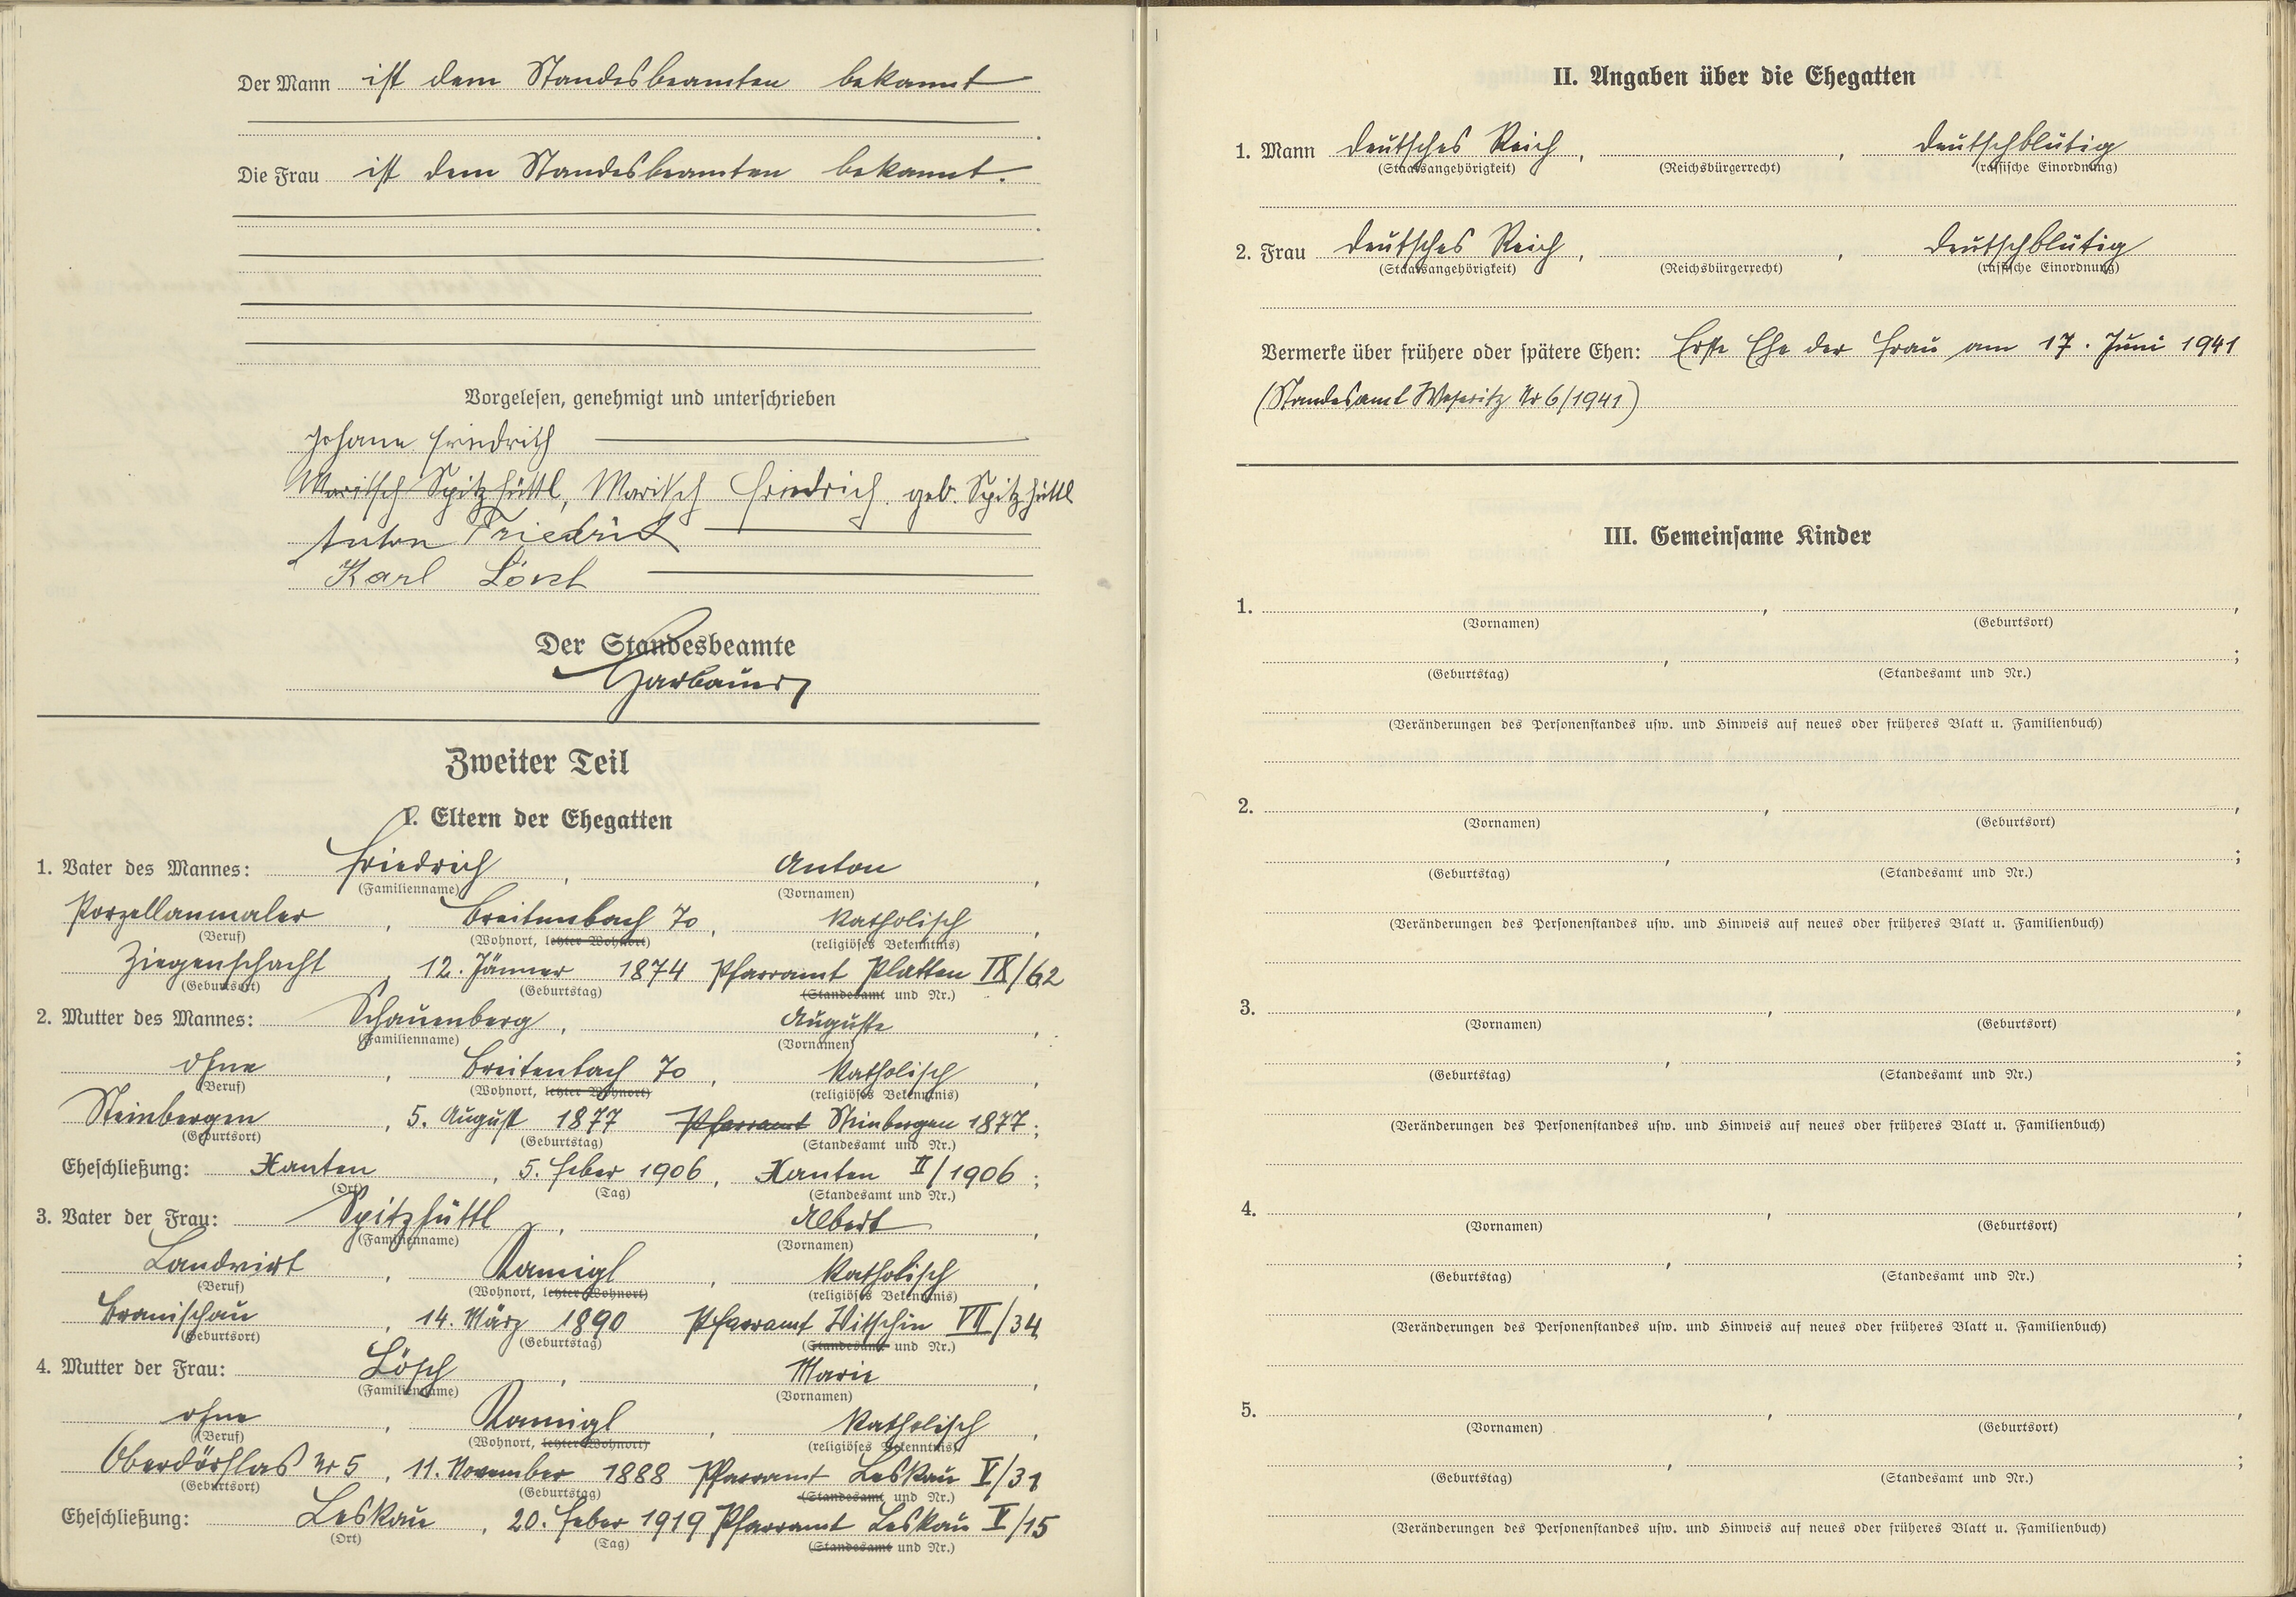 Der Mann ist dem Standesbeamten bekannt
.
Die Frau ist dem Standesbeamten bekannt.
.
Vorgelesen, genehmigt und unterschrieben
Johann Friedrich
Maritsch Spitzhüttl, Maritsch Friedrich geb. Spitzhüttl
Anton Friedrich
Karl
Der Standesbeamte
Zweiter Teil
I. Eltern der Ehegatten
1. Vater des Mannes: Friedrich, Anton,
(Familienname) (Vornamen)
Porzellanmaler, Breitenbach 70, katholisch,
(Beruf) (Wohnort, letzter Wohnort) (religiöses Bekenntnis)
Ziegenschacht, 12. Jänner 1874 Pfarramt Platten IX/62
(Geburtsort) (Geburtstag) (Standesamt und Nr.)
2. Mutter des Mannes: Schauenberg, Auguste,
(Familienname) (Vornamen)
ohne, Breitenbach 70, katholisch,
(Beruf) (Wohnort, letzter Wohnort) (religiöses Bekenntnis)
Steinbergen, 5. August 1877 Pfarramt Steinbergen 1877;
(Geburtsort) (Geburtstag) (Standesamt und Nr.)
Eheschließung: Xanten, 5. Feber 1906, Xanten II/1906;
(Ort) (Tag) (Standesamt und Nr.)
3. Vater der Frau: Spitzhüttl, Albert,
(Familienname) (Vornamen)
Landwirt, Ramigl, katholisch,
(Beruf) (Wohnort, letzter Wohnort) (religiöses Bekenntnis)
Branischau, 14. März 1890 Pfarramt Witschin VII/34
(Geburtsort) (Geburtstag) (Standesamt und Nr.)
4. Mutter der Frau: Lösch, Marie,
(Familienname) (Vornamen)
ohne, Ramigl, katholisch,
(Beruf) (Wohnort, letzter Wohnort) (religiöses Bekenntnis)
Oberdörflas Nr 5, 11. November 1888 Pfarramt Leskau V/31
(Geburtsort) (Geburtstag) (Standesamt und Nr.)
Eheschließung: Leskau, 20. Feber 1919 Pfarramt Leskau V/15
(Ort) (Tag) (Standesamt und Nr.)
II. Angaben über die Ehegatten
1. Mann deutsches Reich, , deutschblütig
(Staatsangehörigkeit) (Reichsbürgerrecht) (rassische Einordnung)
2. Frau deutsches Reich, , deutschblütig
(Staatsangehörigkeit) (Reichsbürgerrecht) (rassische Einordnung)
Vermerke über frühere oder spätere Ehen: Erste Ehe der Frau am 17. Juni 1941
(Standesamt Weseritz Nr 6/1941)
III. Gemeinsame Kinder
1. , ,
(Vornamen) (Geburtsort)
, ;
(Geburtstag) (Standesamt und Nr.)
(Veränderungen des Personenstandes usw. und Hinweis auf neues oder früheres Blatt u. Familienbuch)
2. , ,
(Vornamen) (Geburtsort)
, ;
(Geburtstag) (Standesamt und Nr.)
(Veränderungen des Personenstandes usw. und Hinweis auf neues oder früheres Blatt u. Familienbuch)
3. , ,
(Vornamen) (Geburtsort)
, ;
(Geburtstag) (Standesamt und Nr.)
(Veränderungen des Personenstandes usw. und Hinweis auf neues oder früheres Blatt u. Familienbuch)
4. , ,
(Vornamen) (Geburtsort)
, ;
(Geburtstag) (Standesamt und Nr.)
(Veränderungen des Personenstandes usw. und Hinweis auf neues oder früheres Blatt u. Familienbuch)
5. , ,
(Vornamen) (Geburtsort)
, ;
(Geburtstag) (Standesamt und Nr.)
(Veränderungen des Personenstandes usw. und Hinweis auf neues oder früheres Blatt u. Familienbuch)